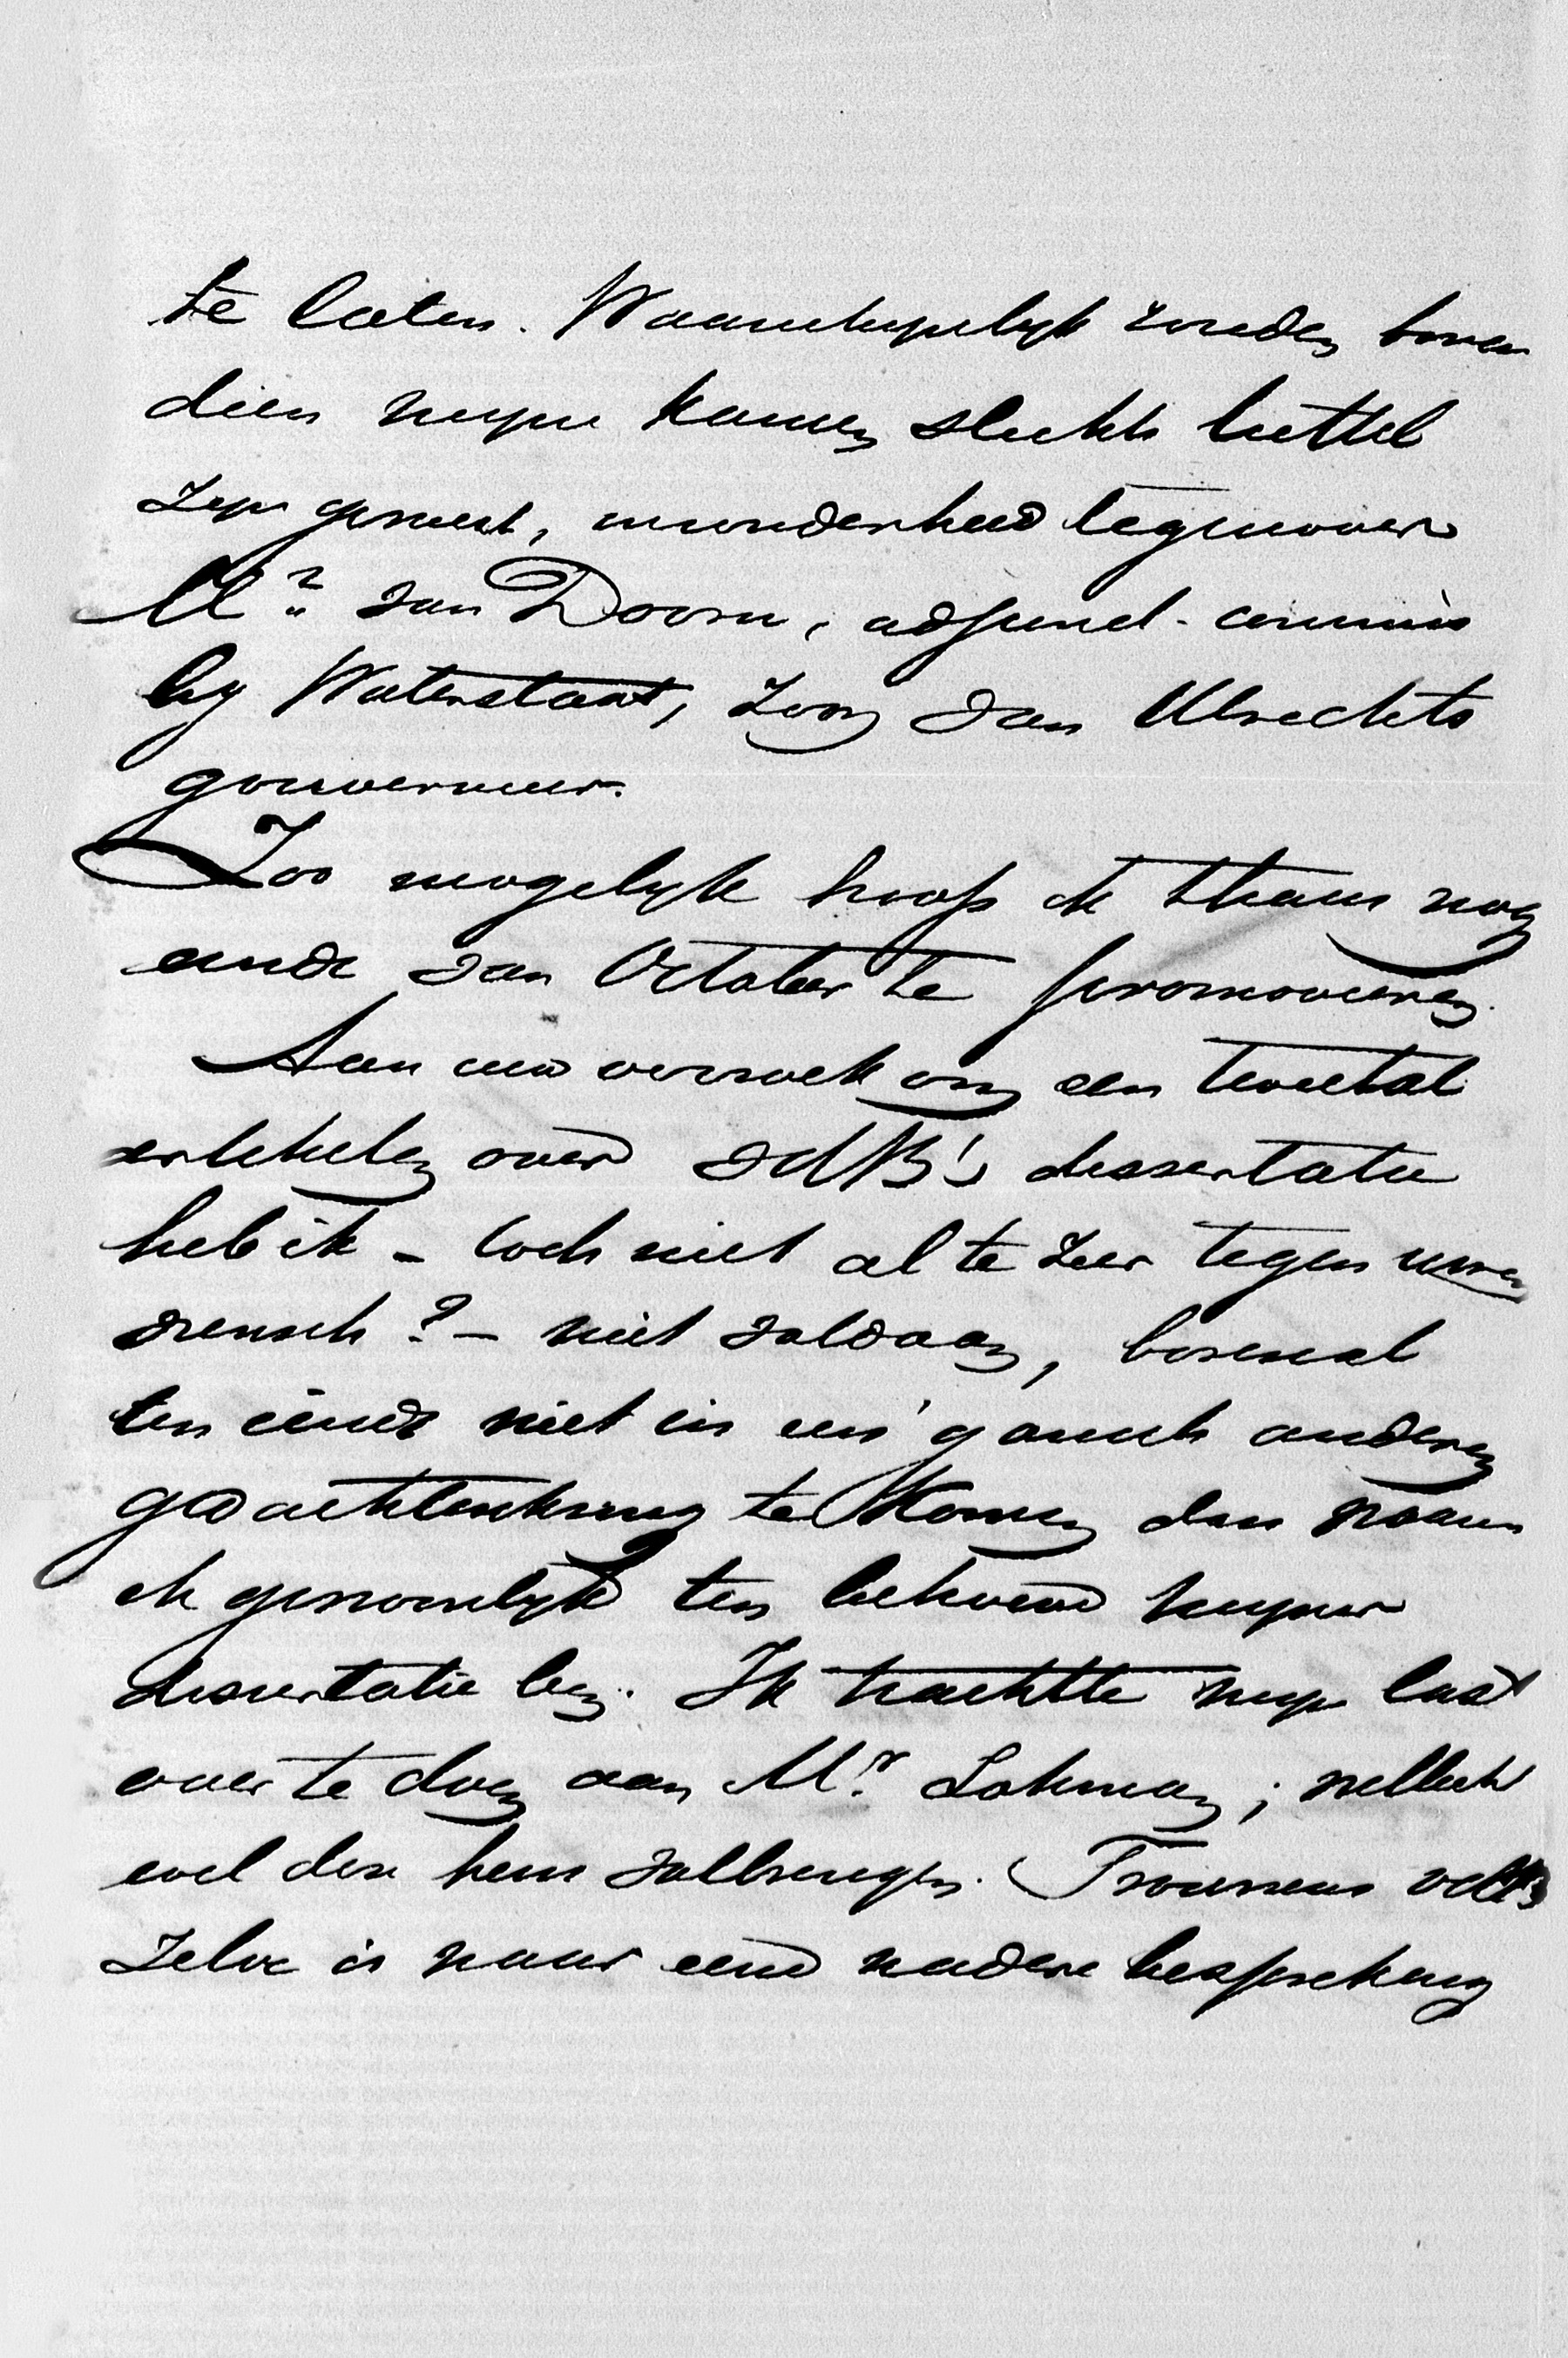 te laten. Waarschynlyk zouden boven
dien myne kansen slechts luttel
zyn geweest, inzonderheid tegenover
Mr. van Doorn, adjunct-commies
by Waterstaat, zoon van Utrechts
gouverneur.
Zoo mogelyk hoop ik thans nog
einde van October te promoveeren.
Aan uw verzoek om een tweetal
artikelen over vdB's dissertatie
heb ik – toch niet al te zeer tegen uwen
wensch? – niet voldaan, bovenal
ten einde niet in een gansch anderen
gedachtenkring te komen dan waarin
ik gewoonlyk ten behoeve myner
dissertatie ben. Ik trachtte myn last
over te doen aan Mr. Lohman; wellicht
wil deze hem volbrengen. Trouwens
zelve is naar eene nadere bespreking